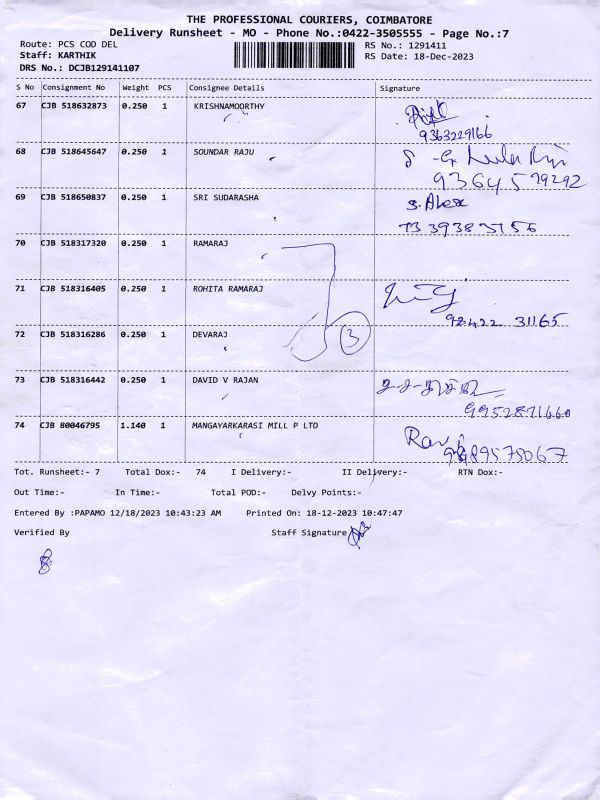 THE PROFESSIONAL COURIERS, COIMBATORE
Delivery Runsheet - MO - Phone No.:0422-3505555 - Page No.:7
Route: PCS COD DEL RS No.: 1291411
Staff: KARTHIK RS Date: 18-Dec-2023
DRS No.: DCJB129141107
S No Consignment No Weight PCS Consignee Details Signature
67 CJB 518632873 0.250 1 KRISHNAMOORTHY
9363229166
68 CJB 518645647 0.250 1 SOUNDAR RAJU
93645 79292
69 CJB 518650837 0.250 1 SRI SUDARASHA
73 39383156
70 CJB 518317320 0.250 1 RAMARAJ
71 CJB 518316405 0.250 1 ROHITA RAMARAJ
98422 31165
72 CJB 518316286 0.250 1 DEVARAJ 3
73 CJB 518316442 0.250 1 DAVID V RAJAN
9952871660
74 CJB 80046795 1.140 1 MANGAYARKARASI MILL P LTD
Ravi
9689575067
Tot. Runsheet:- 7 Total Dox:- 74 I Delivery:- II Delivery:- RTN Dox:-
Out Time:- In Time:- Total POD:- Delvy Points:-
Entered By :PAPAMO 12/18/2023 10:43:23 AM Printed On: 18-12-2023 10:47:47
Verified By Staff Signature